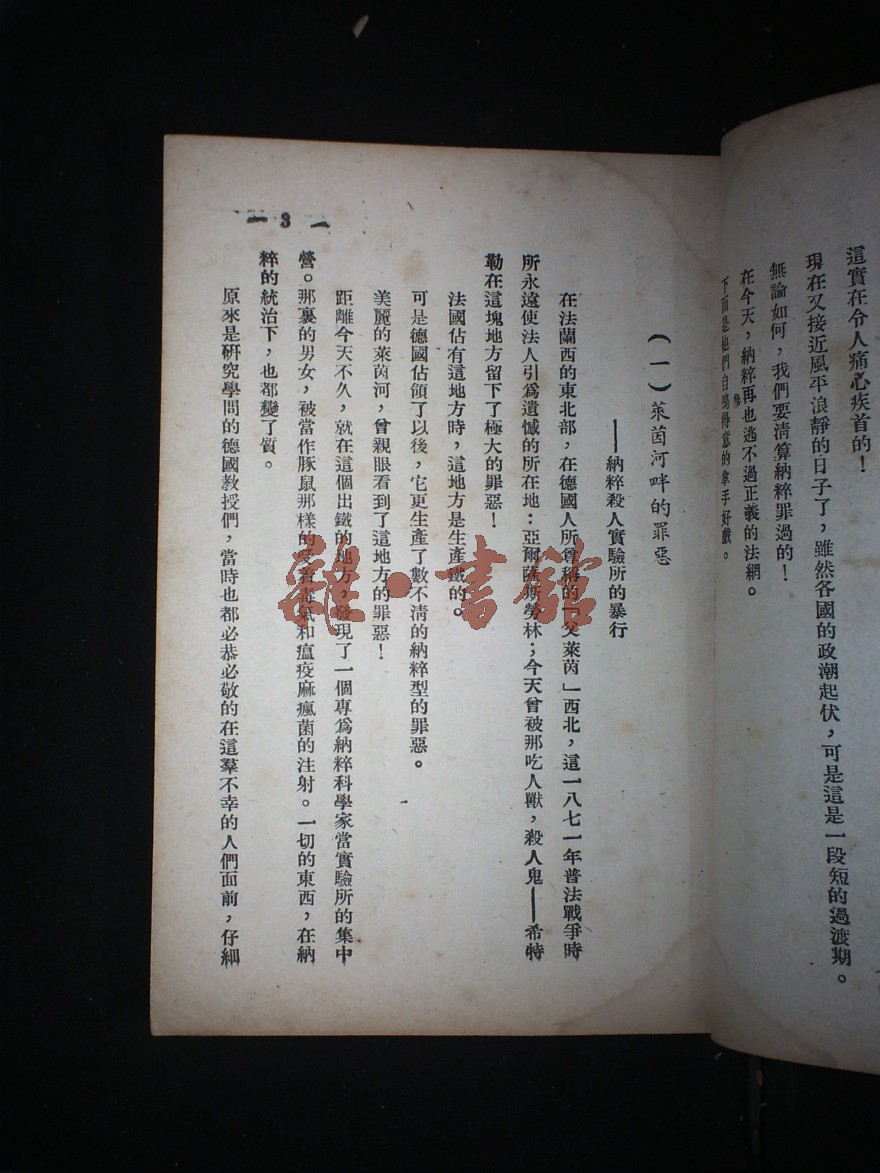 這實在令人痛心疾首的！
現在又接近風平浪靜的日子了，雖然各國的政潮起伏，可是這是一段短的過渡期。
無論如何，我們要清算納粹罪過的！
在今天，納粹再也逃不過正義的法網。
下面是他們自鳴得意的拿手好戲。
（一）萊茵河畔的罪惡
——納粹殺人實驗所的暴行
在法蘭西的東北部，在德國人所尊稱的「父萊茵」西北，這一八七一年普法戰爭時
所永遠使法人引爲遺憾的所在地：亞爾薩斯勞林；今天曾被那吃人獸，殺人鬼——希特
勒在這塊地方留下了極大的罪惡！
法國佔有這地方時，這地方是生產鐵的。
可是德國佔領了以後，它更生產了數不清的納粹型的罪惡。
美麗的萊茵河，曾親眼看到了這地方的罪惡！
距離今天不久，就在這個出鐵的地方，發現了一個專爲納粹科學家當實驗所的集中
營。那裏的男女，被當作豚鼠那樣的受着毒氣和瘟疫麻瘋菌的注射。一切的東西，在納
粹的統治下，也都變了質。
原來是研究學問的德國教授們，當時也都必恭必敬的在這羣不幸的人們面前，仔細
— 3 —
雜·書館